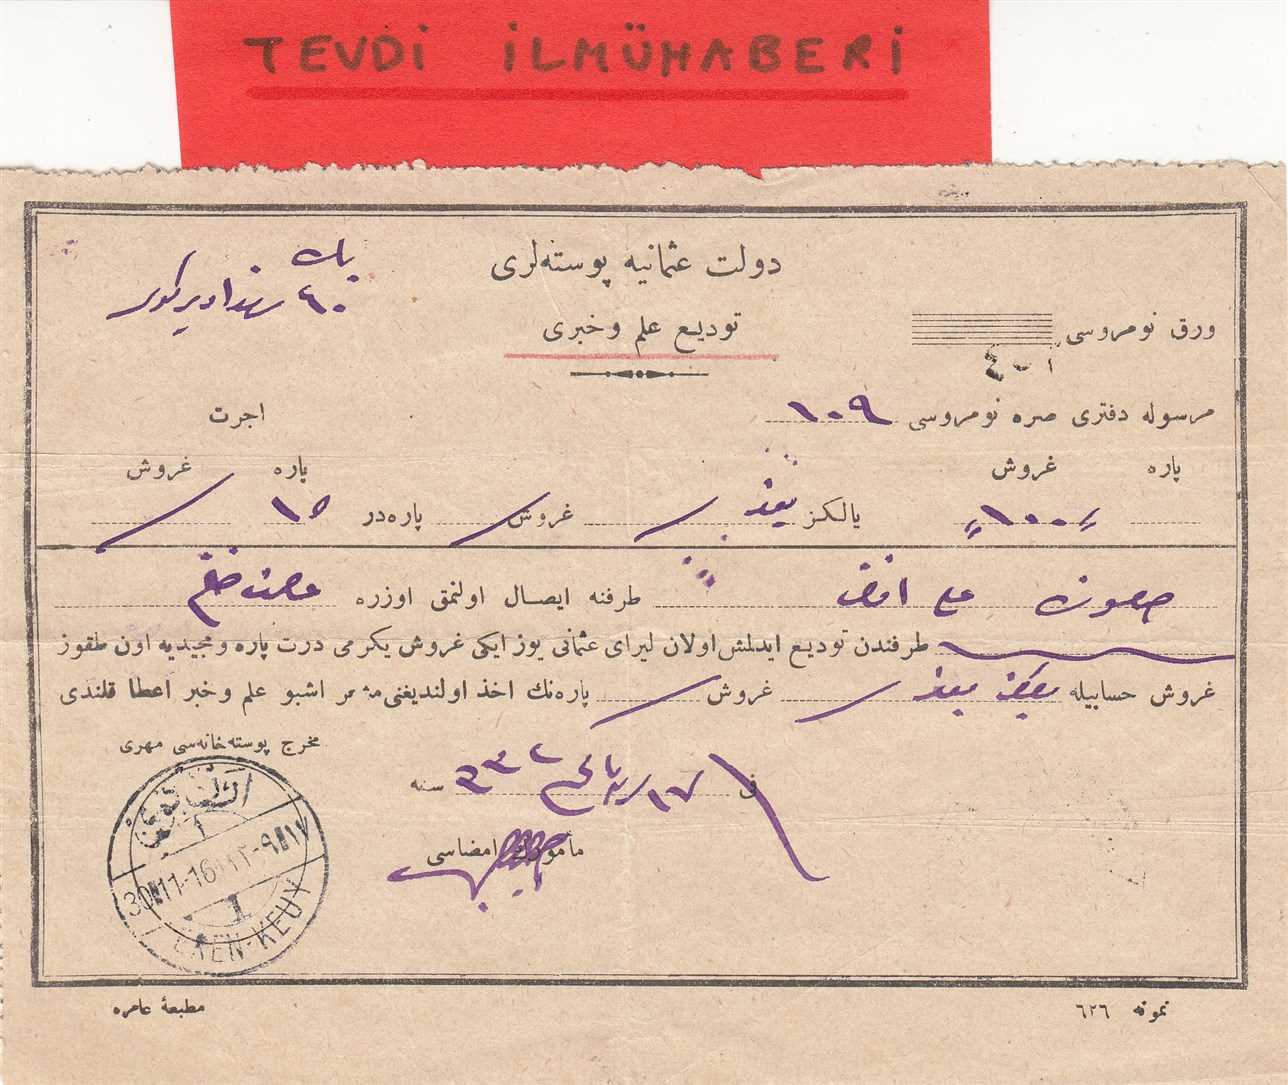 TEVDİ İLMÜHABERİ
دولت عثمانیه پوسته‌لری
تودیع علم و خبری
ورق نومروسی
مرسوله دفتری صره نومروسی ١٠٩
اجرت
پاره غروش پاره غروش
١٠٠ یالکز یوز غروش پاره‌در ١٥
علی طرفنه ایصال اولنمق اوزره
طرفندن تودیع ایدلمش اولان لیرای عثمانی یوز ایکی غروش یکرمی درت پاره و مجیدیه اون طقوز
غروش حسابیله یالکز یوز غروش پاره‌نك اخذ اولندیغنی مشعر اشبو علم و خبر اعطا قلندی
مخرج پوسته‌خانه‌سی مهری
فی ١٧ سنه ٣٣٢
مأمورك امضاسی
30 11-16
EREN-KEUY
مطبعهٔ عامره
نمونه ٦٢٦